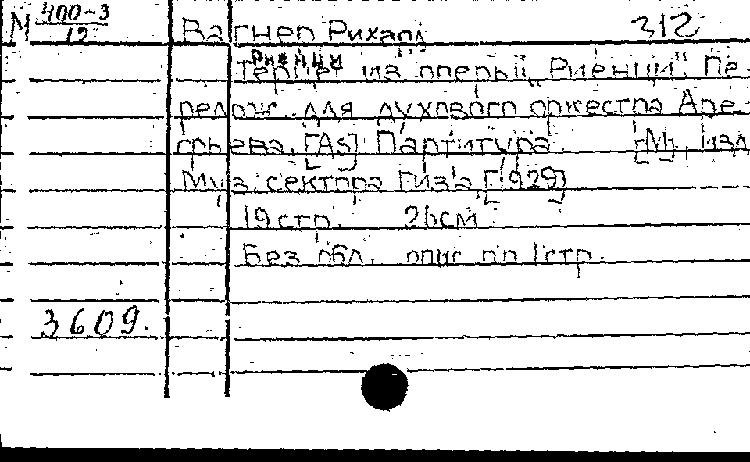 М 400-3
12
Вагнер Рихард 312
Риенци
Терцет из оперы „Риенци" Пе-
релож. для духового оркестра Аре-
фьева. [As] Партитура. [М] Изд
Муз сектора Гиза, [1929]
19 стр. 26 см.
Без обл. опис по 1 стр.
3609.